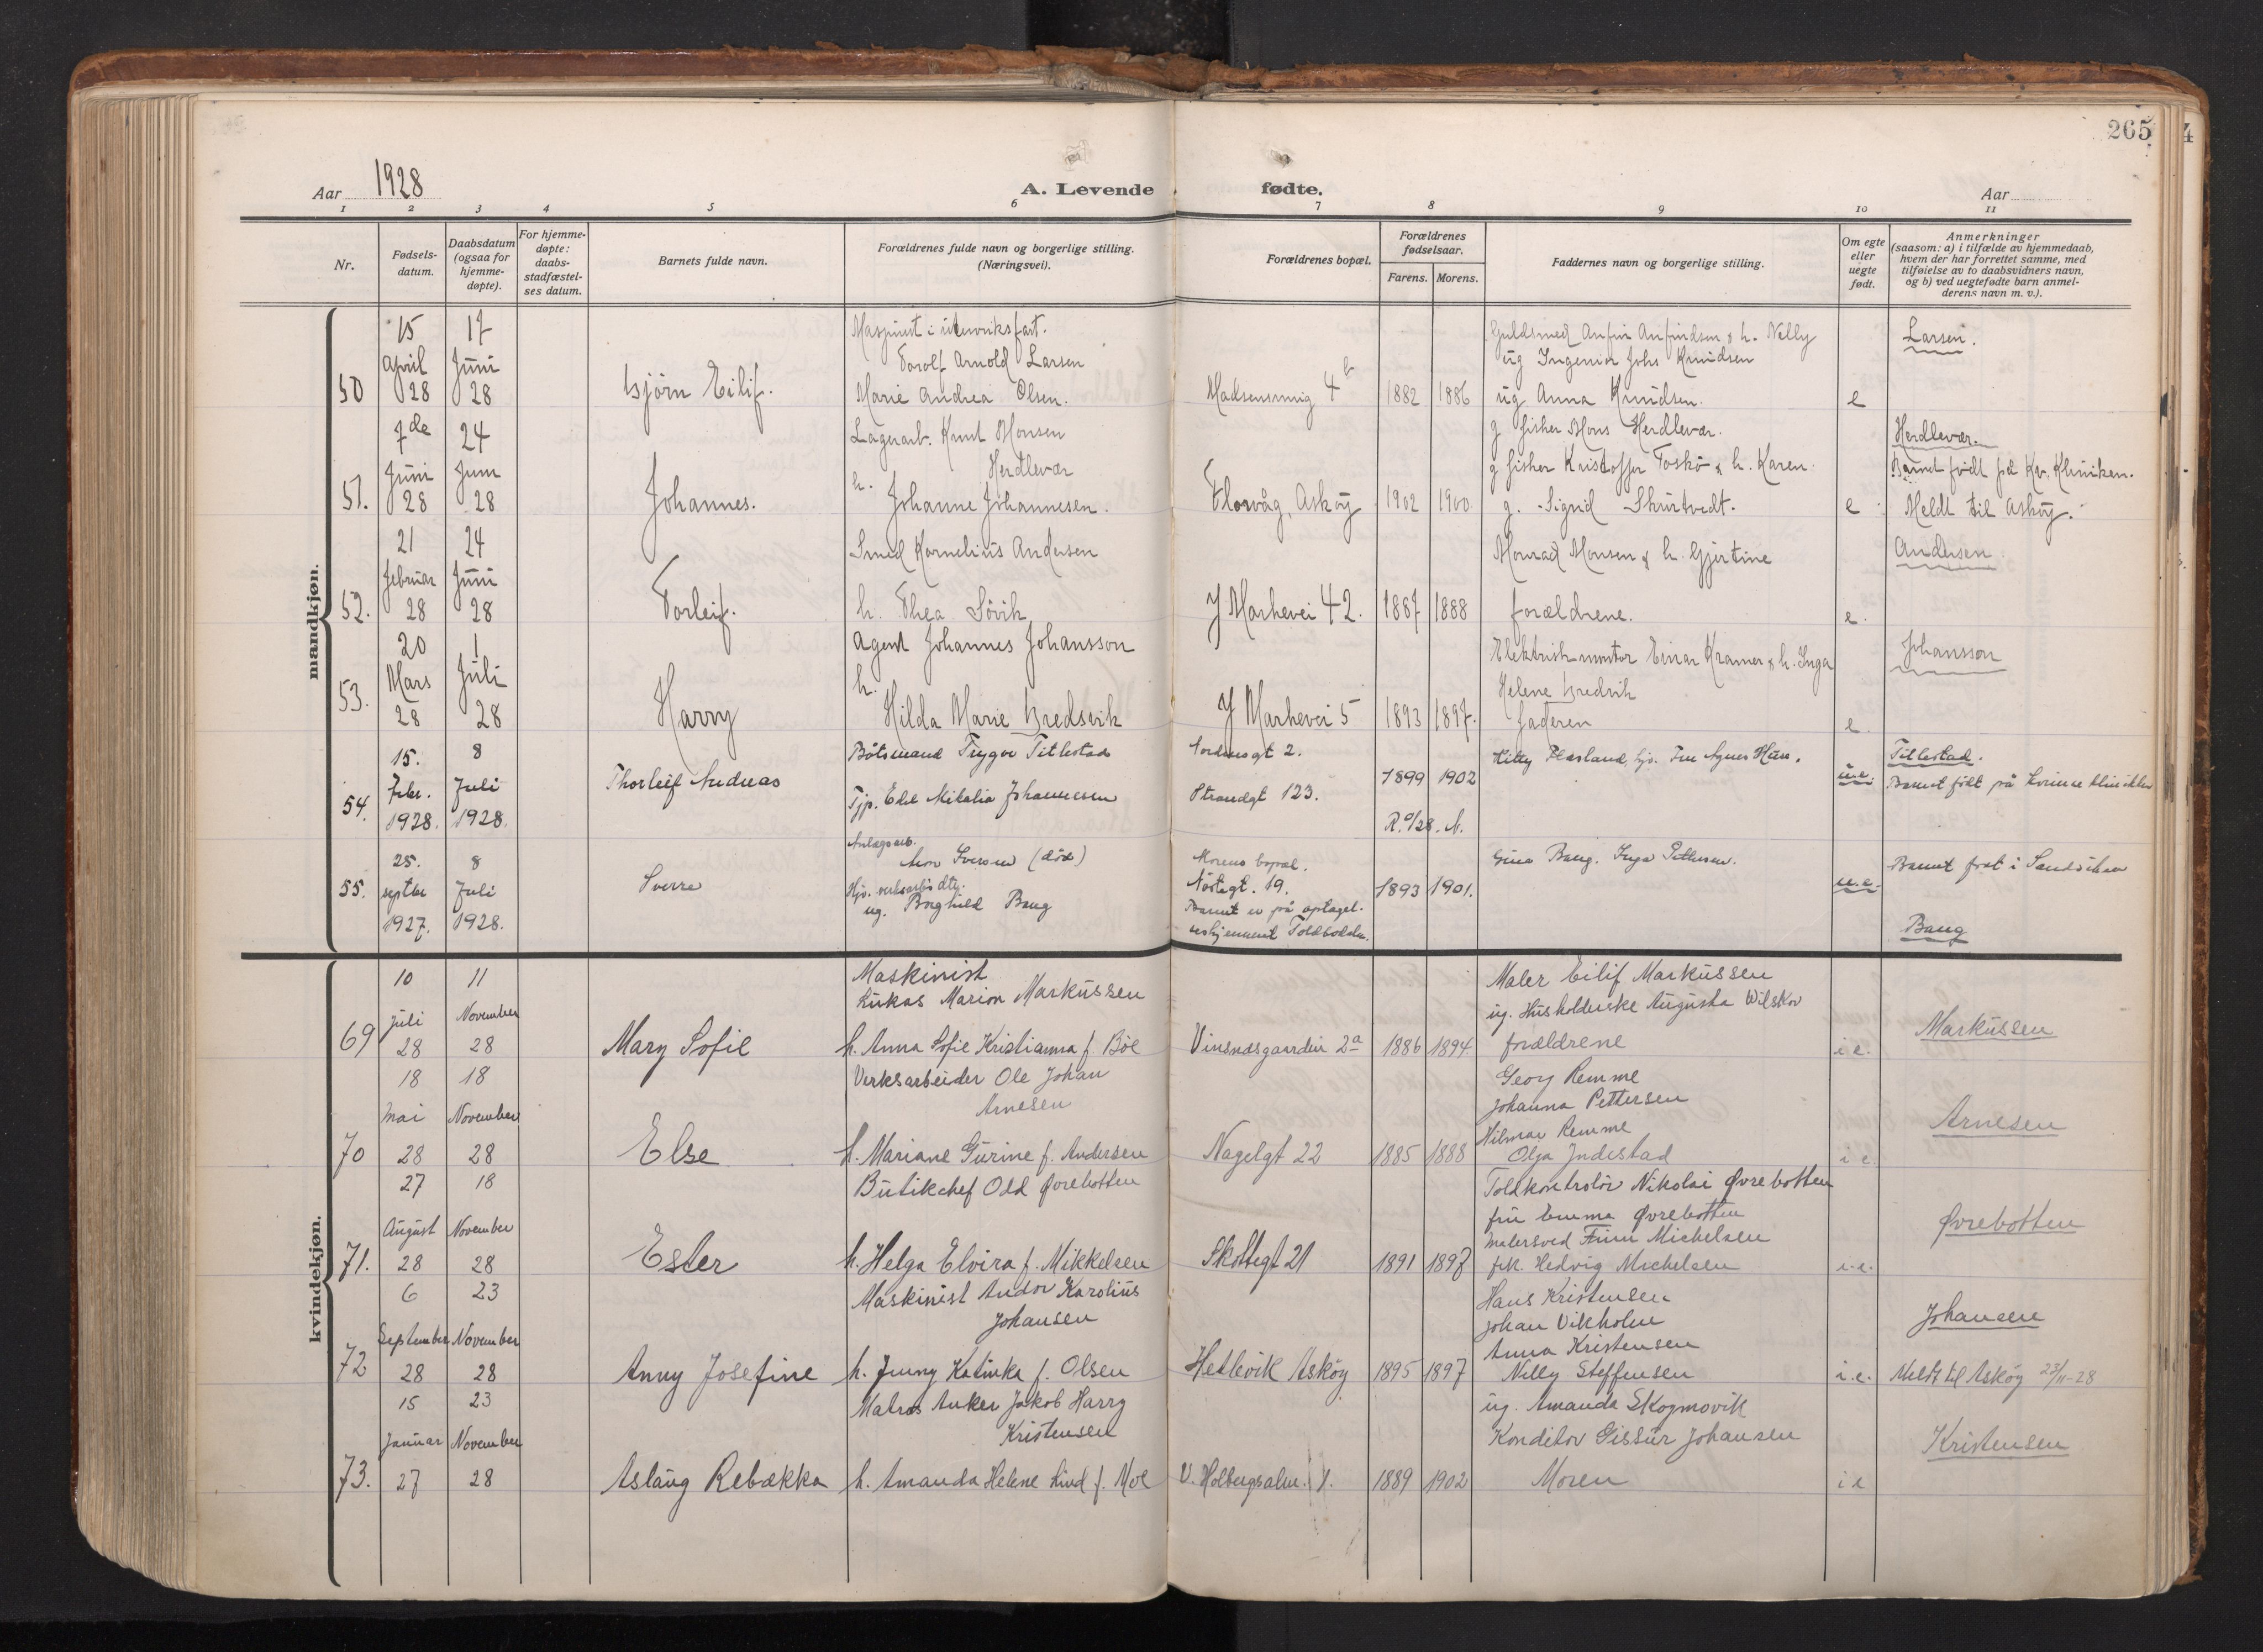 265
4
Aar 1928
A. Levende fødte.
Aar
1 2 3 4 5 6 7 8 9 10 11
Nr.
Fødsels-
datum.
Daabsdatum
(ogsaa for
hjemme-
døpte).
For hjemme-
døpte:
daabs-
stadfæstel-
ses datum.
Barnets fulde navn.
Forældrenes fulde navn og borgerlige stilling.
(Næringsvei).
Forældrenes bopæl.
Forældrenes
fødselsaar.
Farens. Morens.
Faddernes navn og borgerlige stilling.
Om egte
eller
uegte
født.
Anmerkninger
(saasom: a) i tilfælde av hjemmedaab,
hvem der har forrettet samme, med
tilføielse av to daabsvidners navn,
og b) ved uegtefødte barn anmel-
derens navn m. v.).
mandkjøn.
50
15
April
28
17
Juni
28
Bjørn Eilif.
Maskinist i utenriksfart.
Torolf Arnold Larsen
Marie Andrea Olsen.
4 b
1882 1886
Guldsmed Anfin Anfindsen & h. Nelly
ug Ingeniør Johs Knudsen
ug Anna Knudsen.
e
Larsen.
51.
7de
Juni
28
24
Juni
28
Johannes.
Lagerarb. Knut Monsen
Herdlevær
h. Johanne Johannesen.
Florvåg, Askøy
1902 1900
g fisker Mons Herdlevær.
g fisker Kristoffer Toskø & h. Karen.
g. Sigrid Skurtvedt.
e
Herdlevær.
Barnet født på Kv. Kliniken.
Meldt til Askøy.
52.
21
Februar
28
24
Juni
28
Torleif.
Smed Kornelius Andersen
h. Thea Søvik
Y Markevei 42.
1887 1888
Monrad Monsen & h. Gjertine
forældrene.
e.
Andersen
53.
20
Mars
28
1
Juli
28
Harry
Agent Johannes Johansson
h.
Hilda Marie Bredsvik
Y Markevei 5
1893 1897.
Elektriskmontør Einar Kramer & h. Inga
Helene Bredvik
faderen
e.
Johansson
54.
15.
Febr.
1928.
8
Juli
1928.
Thorleif Andreas
Båtsmand Trygve Titlestad
Tjp. Edel Mikalia Johannessen
Nordnesgt 2.
Strandgt 123.
1899 1902
Kitty Flesland, hjv. Fru Agnes
u.e.
Titlestad.
Barnet født på kvinneklinikken
55.
25.
septbr
1927.
8
Juli
1928.
Sverre
Anlægsarb.
Iversen (død)
ug. Borghild Baug
Morens bopæl.
Nøstegt. 19.
Barnet er på optagel-
seshjemmet Toldboden.
1893 1901.
Baug. Inga Pettersen.
u.e.
Barnet født i Sandviken
Baug
kvindekjøn.
69
10
Juli
28
11
November
28
Mary Sofie
Maskinist
Lukas Marion Markussen
h. Anna Sofie Kristianna f. Bøe
Vinsnæsgaarden 2a
1886 1894.
Maler Eilif Markussen
ug. Husholderske Augusta Wilskov
forældrene
i e.
Markussen
70
18
Mai
28
18
November
28
Else
Verksarbeider Ole Johan
Arnesen
h. Mariane Gurine f. Andersen
Nagelgt 22
1885 1888
Georg Remme
Johanna Pettersen
Hilmar Remme
Olga Indestad
i e.
Arnesen
71.
27
August
28
18
November
28
Ester
Butikchef Odd Øvrebotten
h. Helga Elvira f. Mikkelsen
Skottegt 21
1891 1897
Toldkontrolør Nikolai Øvrebotten
fru Emma Øvrebotten
malersved Finn Michelsen
frk. Hedvig Michelsen
i.e.
Øvrebotten
72
6
September
28
23
November
28
Anny Josefine
Maskinist Andor Karolius
Johansen
h. Jenny Katinka f. Olsen
Hetlevik Askøy
1895 1897
Hans Kristensen
Johan Vikholm
Anna Kristensen
Nelly Steffensen
i.e.
Johansen
Meldt til Askøy 23/11-28
73.
15
Januar
27
23
November
28
Aslaug Rebækka
Matros Anker Jakob Harry
Kristensen
h. Amanda Helene Lind f. Moe
V. Holbergsalm. 1.
1889 1902
ug. Amanda Skogmovik
Konditor Gissur Johansen
Moren
i e
Kristensen